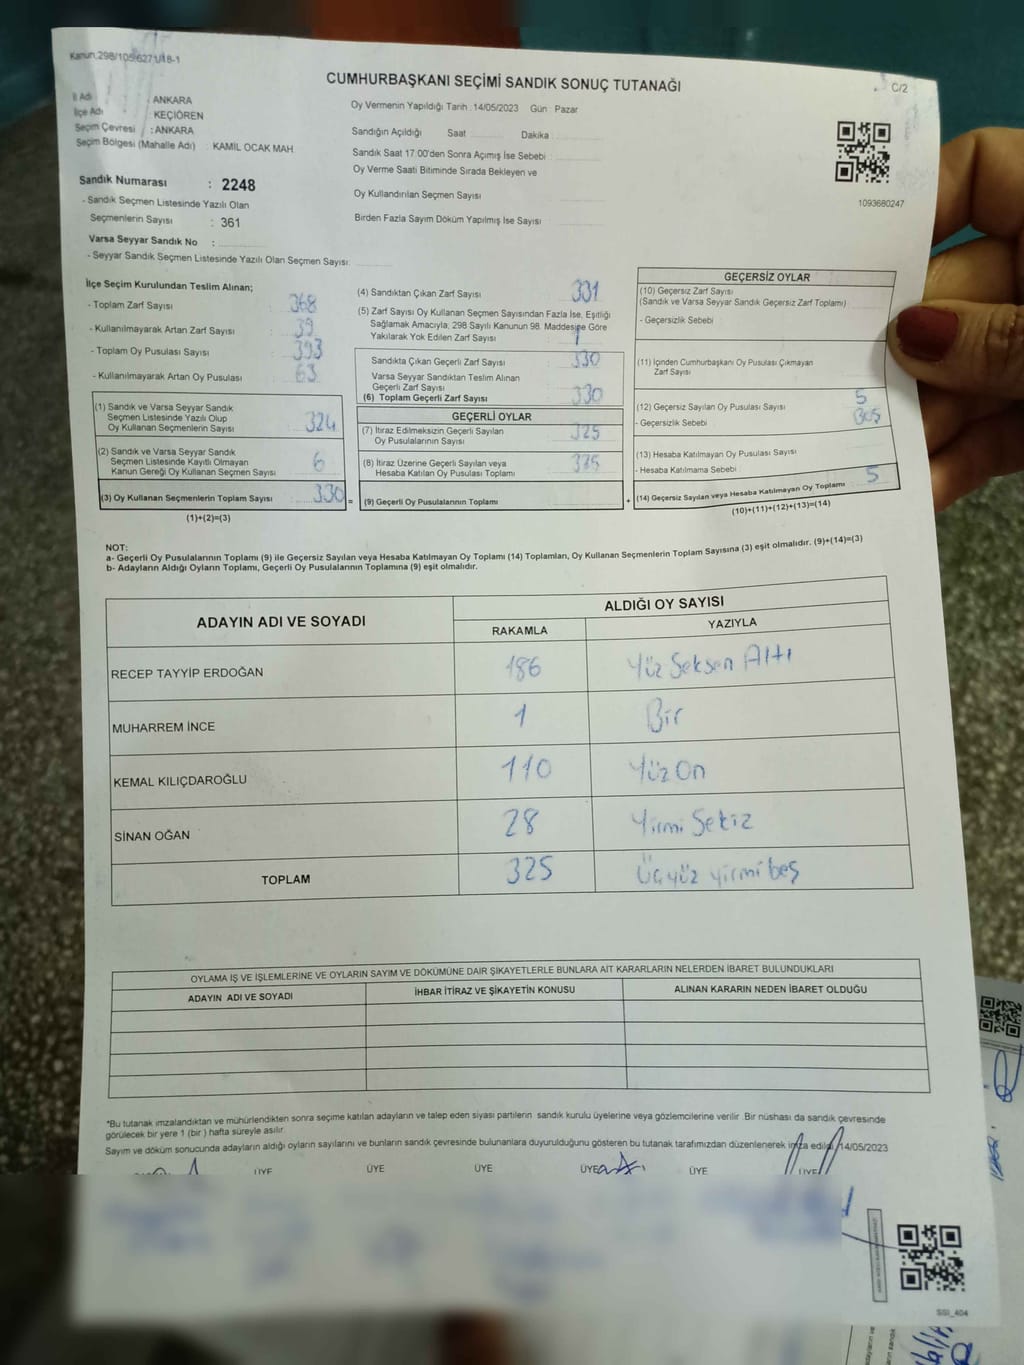 Kanun,298/105,6271/18-1
CUMHURBAŞKANI SEÇİMİ SANDIK SONUÇ TUTANAĞI
C/2
İl Adı : ANKARA
İlçe Adı : KEÇİÖREN
Seçim Çevresi : ANKARA
Seçim Bölgesi (Mahalle Adı) : KAMİL OCAK MAH.
Sandık Numarası : 2248
- Sandık Seçmen Listesinde Yazılı Olan
Seçmenlerin Sayısı : 361
Varsa Seyyar Sandık No :
- Seyyar Sandık Seçmen Listesinde Yazılı Olan Seçmen Sayısı:
Oy Vermenin Yapıldığı Tarih :14/05/2023 Gün : Pazar
Sandığın Açıldığı Saat Dakika
Sandık Saat 17:00'den Sonra Açımış İse Sebebi :
Oy Verme Saati Bitiminde Sırada Bekleyen ve
Oy Kullandırılan Seçmen Sayısı
Birden Fazla Sayım Döküm Yapılmış İse Sayısı
1093680247
İlçe Seçim Kurulundan Teslim Alınan;
- Toplam Zarf Sayısı : 368
- Kullanılmayarak Artan Zarf Sayısı : 39
- Toplam Oy Pusulası Sayısı : 393
- Kullanılmayarak Artan Oy Pusulası : 63
(1) Sandık ve Varsa Seyyar Sandık
Seçmen Listesinde Yazılı Olup
Oy Kullanan Seçmenlerin Sayısı : 324
(2) Sandık ve Varsa Seyyar Sandık
Seçmen Listesinde Kayıtlı Olmayan
Kanun Gereği Oy Kullanan Seçmen Sayısı : 6
(3) Oy Kullanan Seçmenlerin Toplam Sayısı : 330 =
(1)+(2)=(3)
(4) Sandıktan Çıkan Zarf Sayısı : 331
(5) Zarf Sayısı Oy Kullanan Seçmen Sayısından Fazla İse, Eşitliği
Sağlamak Amacıyla; 298 Sayılı Kanunun 98. Maddesine Göre
Yakılarak Yok Edilen Zarf Sayısı : 1
Sandıkta Çıkan Geçerli Zarf Sayısı : 330
Varsa Seyyar Sandıktan Teslim Alınan
Geçerli Zarf Sayısı
(6) Toplam Geçerli Zarf Sayısı : 330
GEÇERLİ OYLAR
(7) İtiraz Edilmeksizin Geçerli Sayılan
Oy Pusulalarının Sayısı : 325
(8) İtiraz Üzerine Geçerli Sayılan veya
Hesaba Katılan Oy Pusulası Toplamı : 325
(9) Geçerli Oy Pusulalarının Toplamı : +
GEÇERSİZ OYLAR
(10) Geçersiz Zarf Sayısı
(Sandık ve Varsa Seyyar Sandık Geçersiz Zarf Toplamı)
- Geçersizlik Sebebi :
(11) İçinden Cumhurbaşkanı Oy Pusulası Çıkmayan
Zarf Sayısı
(12) Geçersiz Sayılan Oy Pusulası Sayısı : 5
- Geçersizlik Sebebi :
(13) Hesaba Katılmayan Oy Pusulası Sayısı
- Hesaba Katılmama Sebebi :
(14) Geçersiz Sayılan veya Hesaba Katılmayan Oy Toplamı : 5
(10)+(11)+(12)+(13)=(14)
NOT:
a- Geçerli Oy Pusulalarının Toplamı (9) ile Geçersiz Sayılan veya Hesaba Katılmayan Oy Toplamı (14) Toplamları, Oy Kullanan Seçmenlerin Toplam Sayısına (3) eşit olmalıdır. (9)+(14)=(3)
b- Adayların Aldığı Oyların Toplamı, Geçerli Oy Pusulalarının Toplamına (9) eşit olmalıdır.
ADAYIN ADI VE SOYADI ALDIĞI OY SAYISI
RAKAMLA YAZIYLA
RECEP TAYYİP ERDOĞAN 186 Yüz Seksen Altı
MUHARREM İNCE 1 Bir
KEMAL KILIÇDAROĞLU 110 Yüz On
SİNAN OĞAN 28 Yirmi Sekiz
TOPLAM 325 Üçyüz yirmi beş
OYLAMA İŞ VE İŞLEMLERİNE VE OYLARIN SAYIM VE DÖKÜMÜNE DAİR ŞİKAYETLERLE BUNLARA AİT KARARLARIN NELERDEN İBARET BULUNDUKLARI
ADAYIN ADI VE SOYADI İHBAR İTİRAZ VE ŞİKAYETİN KONUSU ALINAN KARARIN NEDEN İBARET OLDUĞU
*Bu tutanak imzalandıktan ve mühürlendikten sonra seçime katılan adayların ve talep eden siyasi partilerin sandık kurulu üyelerine veya gözlemcilerine verilir. Bir nüshası da sandık çevresinde
görülecek bir yere 1 (bir ) hafta süreyle asılır.
Sayım ve döküm sonucunda adayların aldığı oyların sayılarını ve bunların sandık çevresinde bulunanlara duyurulduğunu gösteren bu tutanak tarafımızdan düzenlenerek imza edildi. 14/05/2023
ÜYE ÜYE ÜYE ÜYE ÜYE ÜYE
SSI_404